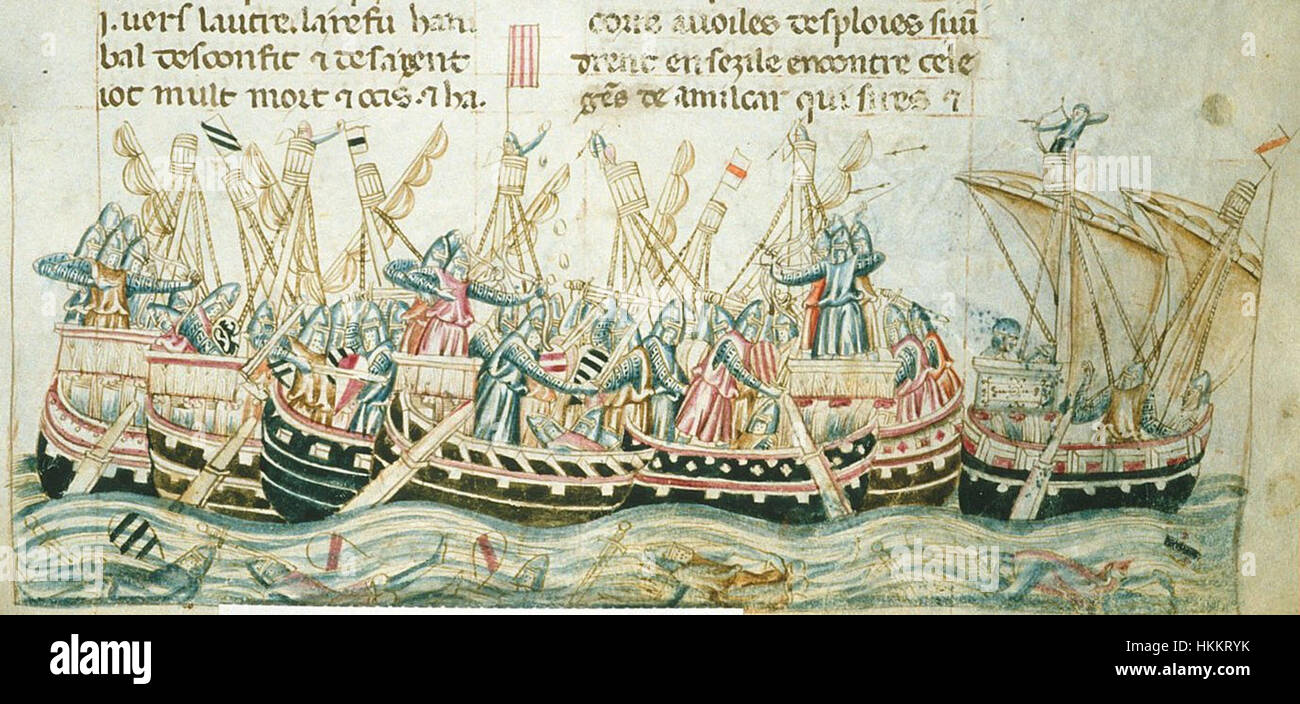 j. uers lautre. la refu hani
bal desconfit ⁊ de sa gent
iot mult mort ⁊ ocis. ⁊ ha.
corre auoiles desploies suin
drent en sezile encontre cele
gēs de amilcar qui sires ⁊
alamy
a
alamy
Image ID: HKKRYK
www.alamy.com